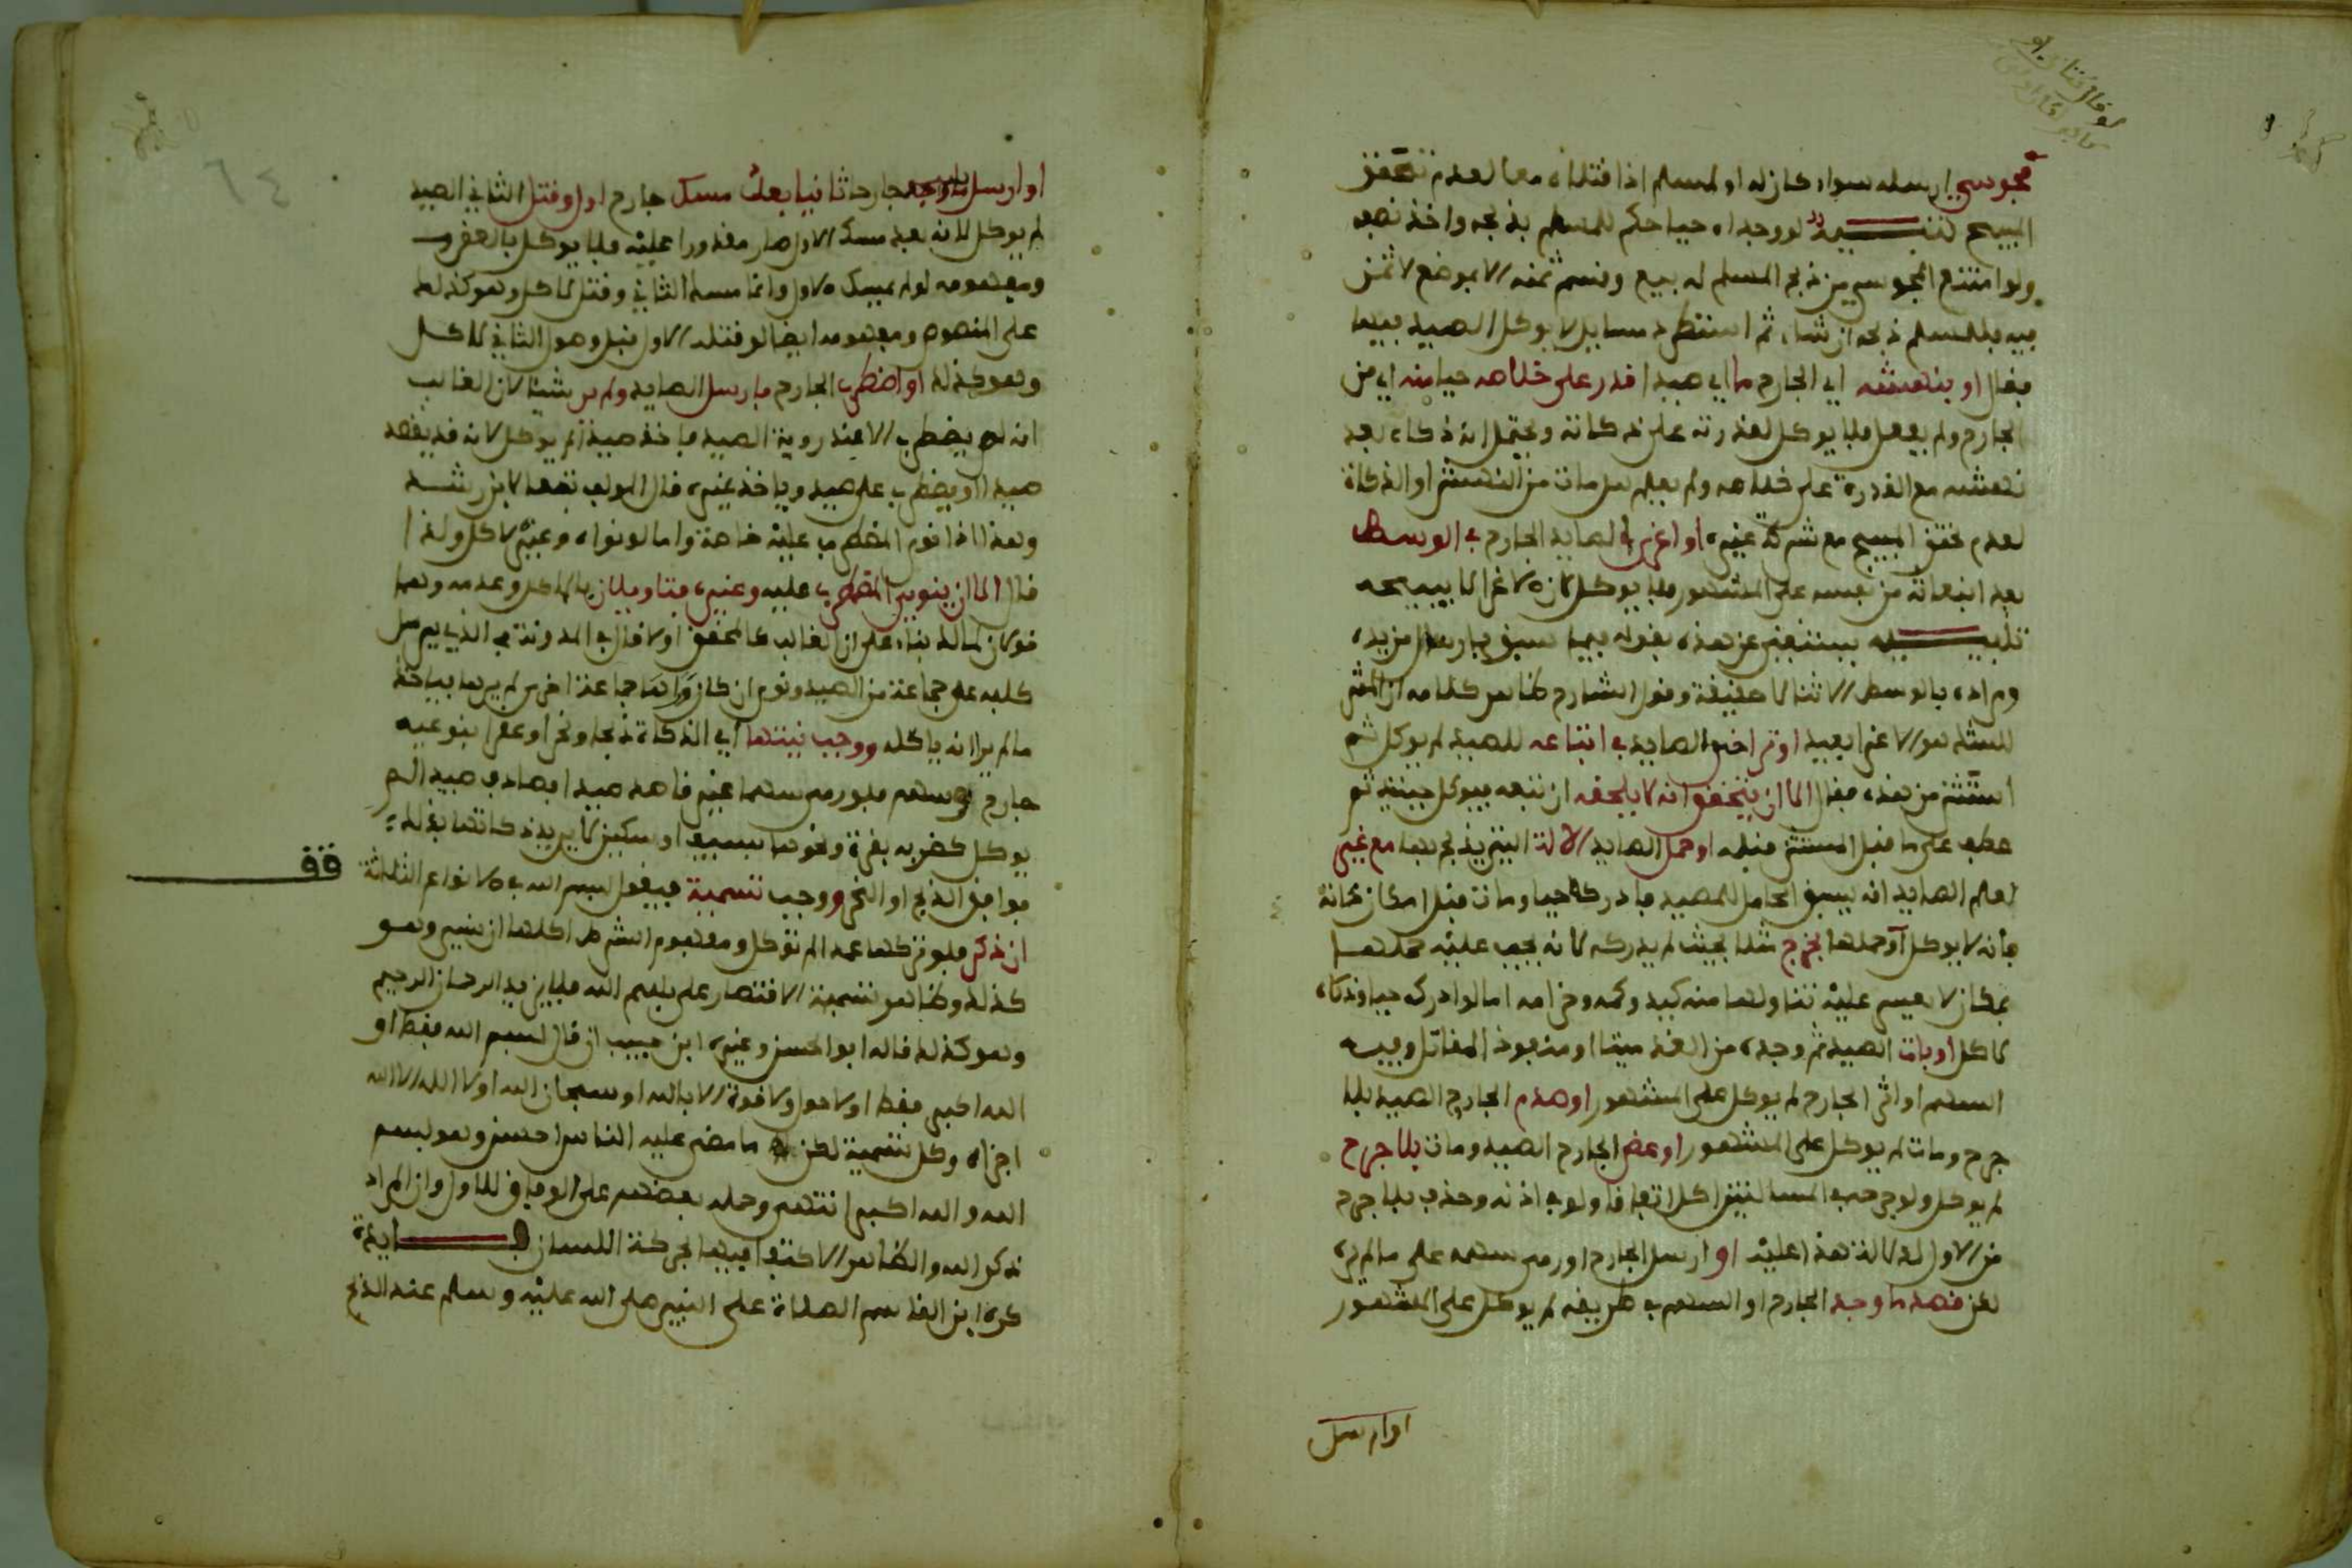 مجوسي ارسله سواء كان له او لمسلم اذا قتلاه معا لعدم تحقق
المبيح تنبيه لو وجداه حيا حكم للمسلم بذبحه واخذ نصفه
ولو امتنع المجوسي من ذبح المسلم له بيع وقسم ثمنه الا بموضع لا ثمن
فيه فللمسلم ذبحه ان شاء ثم استطرد مسايل لا يوكل الصيد فيها
فقال او بنهشه اي الجارح ما اي صيدا قدر على خلاصه حيا منه اي من
الجارح ولم يفعل فلا يوكل لقدرته على ذكاته ويحتمل انه ذكاه بعد
نهشه مع القدرة على خلاصه ولم يعلم هل مات من النهش او الذكاة
لعدم تحقق المبيح مع شركة غيره او اغرى الصايد الجارح في الوسط
بعد انبعاثه من نفسه على المشهور فلا يوكل لان الاغرا لا يبيحه
تنبيه يستغنى عن هذه بقوله فيما سبق بارسال من يده
ومراده بالوسط الاثنا لا حقيقة وقول الشارح ظاهر كلامه ان المثر
للشك هو الاغرا بعيد او تراخى الصايد في اتباعه للصيد لم يوكل ثم
استثنى من هذه فقال الا ان يتحقق انه لا يلحقه ان تبعه فيوكل حينئذ ثم
عطف على ما قبل المستثنى قبله او حمل الصايد الالة التي يذبح بها مع غير
لعلم الصايد انه يسبق الحامل للصيد فادركه حيا ومات قبل امكان ذكاته
فانه لا يوكل او حملها بخرج مثلا بحيث لم يدركه لانه يجب عليه حملها
بمكان لا يعسر عليه تناولها منه كيد وكمه وحزامه اما لو ادركه حيا وذكاه
لاكل او بات الصيد ثم وجده من الغد ميتا او منفوذ المقاتل وفيه
السهم او اثر الجارح لم يوكل على المشهور او صدم الجارح الصيد بلا
جرح ومات لم يوكل على المشهور او عض الجارح الصيد ومات بلا جرح
لم يوكل ولو جرحه في المسالتين اكل اتفاقا ولو في اذنه وحذف بلا جرح
من الاول لدلالة هذا عليه او ارسل الجارح او رمى سهمه على ما لم يره
لكن قصد ما وجد الجارح او السهم في طريقه لم يوكل على المشهور
او ارسل
او ارسل جارحا ثانيا بعد مسك جارح اول وقتل الثاني الصيد
لم يوكل لانه بعد مسك الاول صار مقدورا عليه فلا يوكل بالعقر
ومفهومه لو لم يمسك الاول وانما مسك الثاني وقتل لاكل وهو كذلك
على المنصوص ومفهومه ايضا لو قتله الاول قبل وصول الثاني لاكل
وهو كذلك او اضطرب الجارح فارسل الصايد ولم ير شيئا لان الغالب
انه لا يضطرب الا عند روية الصيد فاخذ صيدا لم يوكل لانه قد يقصد
صيدا او يضطرب على صيد وياخذ غيره قال المولف تبعا لابن رشد
وهذا اذا نوى المضطرب عليه خاصة واما لو نواه وغيره لاكل ولذا
قال الا ان ينوي المضطرب عليه وغيره فتاويلان بالاكل وعدمه وهما
قولان لمالك بناء على ان الغالب كالمحقق اولا قال في المدونة في الذي يرسل
كلبه على جماعة من الصيد ونوى ان كان وراءها جماعة اخرى لم يرها فياخذ
ما لم ير انه ياكله ووجب نيتها اي الذكاة ذبحا ونحرا وعقرا بنوعيه
جارح وسهم فلو رمى سهما غير قاصد صيدا فصادف صيدا لم
يوكل كضربه بقرة ونحوها بسيف او سكين لا يريد ذكاتها بذلك
فوافق الذبح او النحر ووجب تسمية فيقول بسم الله في الانواع الثلاثة
قف
ان ذكر فلو تركها عمدا لم توكل ومفهوم الشرط اكلها ان نسي وهو
كذلك وظاهر تسمية الاقتصار على بسم الله فلا يزيد الرحمان الرحيم
وهو كذلك قاله ابو الحسن وغيره ابن حبيب ان قال بسم الله فقط او
الله اكبر فقط او لا حول ولا قوة الا بالله او سبحان الله او لا اله الا الله
اجزاه وكل تسمية لكن ما مضى عليه الناس احسن وهو بسم
الله والله اكبر انتهى وحمله بعضهم على الوفاق للاول وان المراد
ذكر الله والظاهر الاكتفا فيها بحركة اللسان فايدة
كره ابن القاسم الصلاة على النبي صلى الله عليه وسلم عند الذبح